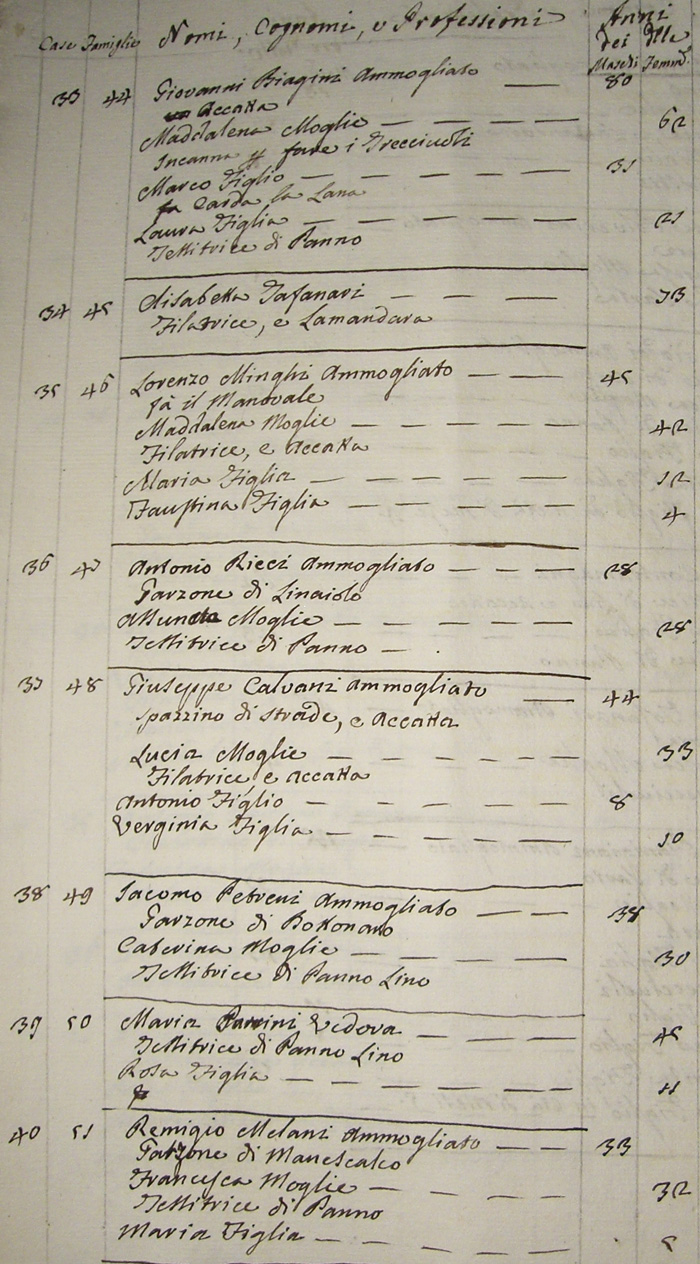 Case Famiglie Nomi, Cognomi, e Professioni Anni
dei delle
Maschi Femm.
33 44 Giovanni Biagini Ammogliato 80
Accatta
Maddalena Moglie 62
Incanna fare i Trecciuoli
Marco Figlio 31
Carda la Lana
Laura Figlia 21
Tessitrice di Panno
34 45 Elisabetta Tafanari 73
Filatrice, e Lamandara
35 46 Lorenzo Minghi Ammogliato 45
fà il Manovale
Maddalena Moglie 42
Filatrice, e Accatta
Maria Figlia 12
Faustina Figlia 4
36 47 Antonio Ricci Ammogliato 28
Garzone di Linaiolo
Moglie 28
Tessitrice di Panno
37 48 Giuseppe Calvani Ammogliato 44
Spazzino di Strade, e Accatta
Lucia Moglie 33
Filatrice e Accatta
Antonio Figlio 8
Verginia Figlia 10
38 49 Iacomo Petreni Ammogliato 38
Garzone di Bottonaro
Caterina Moglie 30
Tessitrice di Panno Lino
39 50 Maria Vedova 45
Tessitrice di Panno Lino
Rosa Figlia 11
40 51 Remigio Melani Ammogliato 33
Garzone di Manescalco
Francesca Moglie 32
Tessitrice di Panno
Maria Figlia 5